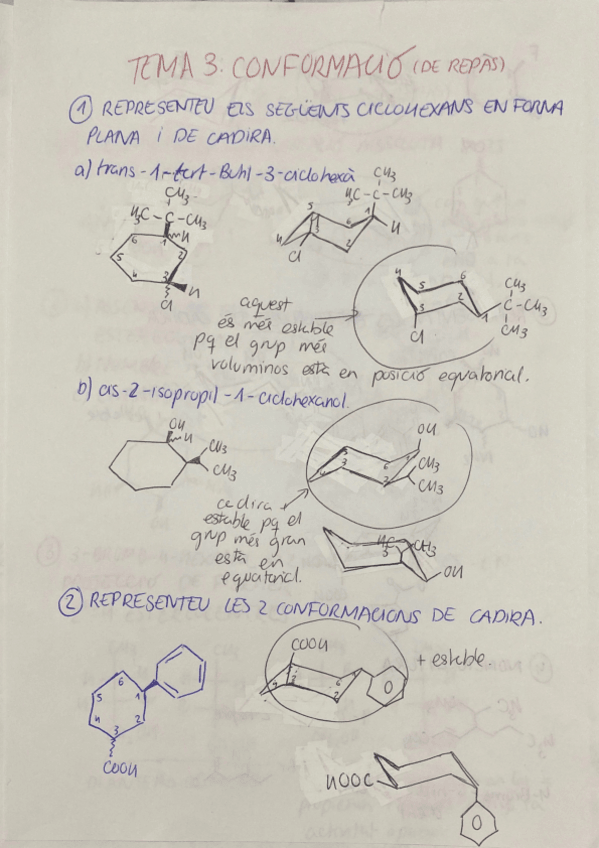 TEMA 3. CONFORMACIÓ (DE REPÀS)
① REPRESENTEU ELS SEGÜENTS CICLOHEXANS EN FORMA
PLANA i DE CADIRA.
a) trans-1-tert-Butil-3-ciclohexà
CH3
H3C-C-CH3
H
Cl
1
2
3
4
5
6
CH3
H3C-C-CH3
H
Cl
aquest
és més estable
pq el grup més
voluminos està en posició equatorial.
CH3
C-CH3
CH3
Cl
b) cis-2-isopropil-1-ciclohexanol.
OH
H
CH3
CH3
OH
CH3
CH3
cadira +
estable pq el
grup més gran
està en
equatorial.
H3C
CH3
OH
② REPRESENTEU LES 2 CONFORMACIONS DE CADIRA.
6
5
1
4
2
3
COOH
COOH
+ estable.
HOOC